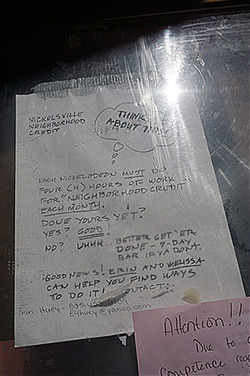 NICKELSVILLE
NEIGHBORHOOD
CREDIT
THINK
ABOUT THIS!
EACH NICKELODEON MUST DO
FOUR (4) HOURS OF WORK
FOR "NEIGHBORHOOD CREDIT
EACH MONTH.
DONE YOURS YET?
YES? GOOD!
NO? UHHH... BETTER GET 'ER
DONE - 7-DAY
BAR IF YA DONT.
GOOD NEWS! ERIN AND MELISSA
CAN HELP YOU FIND WAYS
TO DO IT! CONTACT:
Huey-
@yahoo.com
Attention!!
Due to
competence